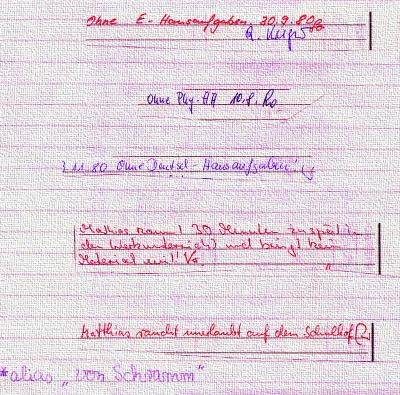 Ohne E-Hausaufgaben. 30.9.80
Ohne Phy.-HA 10.9. Ro
3.11.80 Ohne Deutsch-Hausaufgaben!
Mathias kommt 30 Minuten zu spät in
den Werkunterricht und bringt kein
Material mit!
Matthias raucht unerlaubt auf dem Schulhof
*alias „von Schramm"